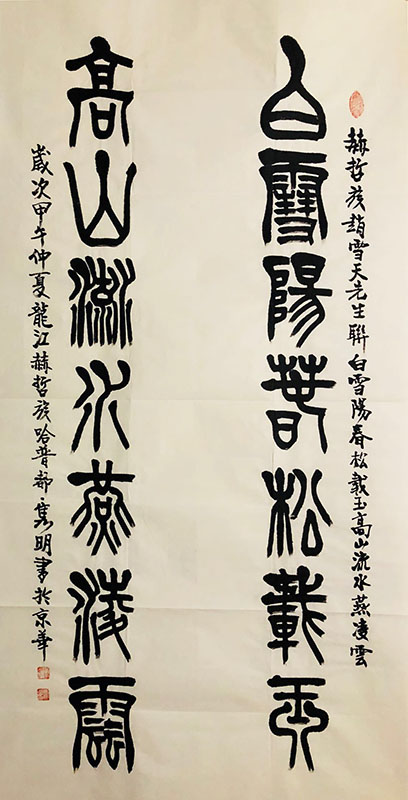 赫哲族趙雪天先生聯白雪陽春松載玉高山流水燕凌雲
白雪陽春松載玉
高山流水燕凌雲
歲次甲午仲夏龍江赫哲族哈普都雋明書於京華